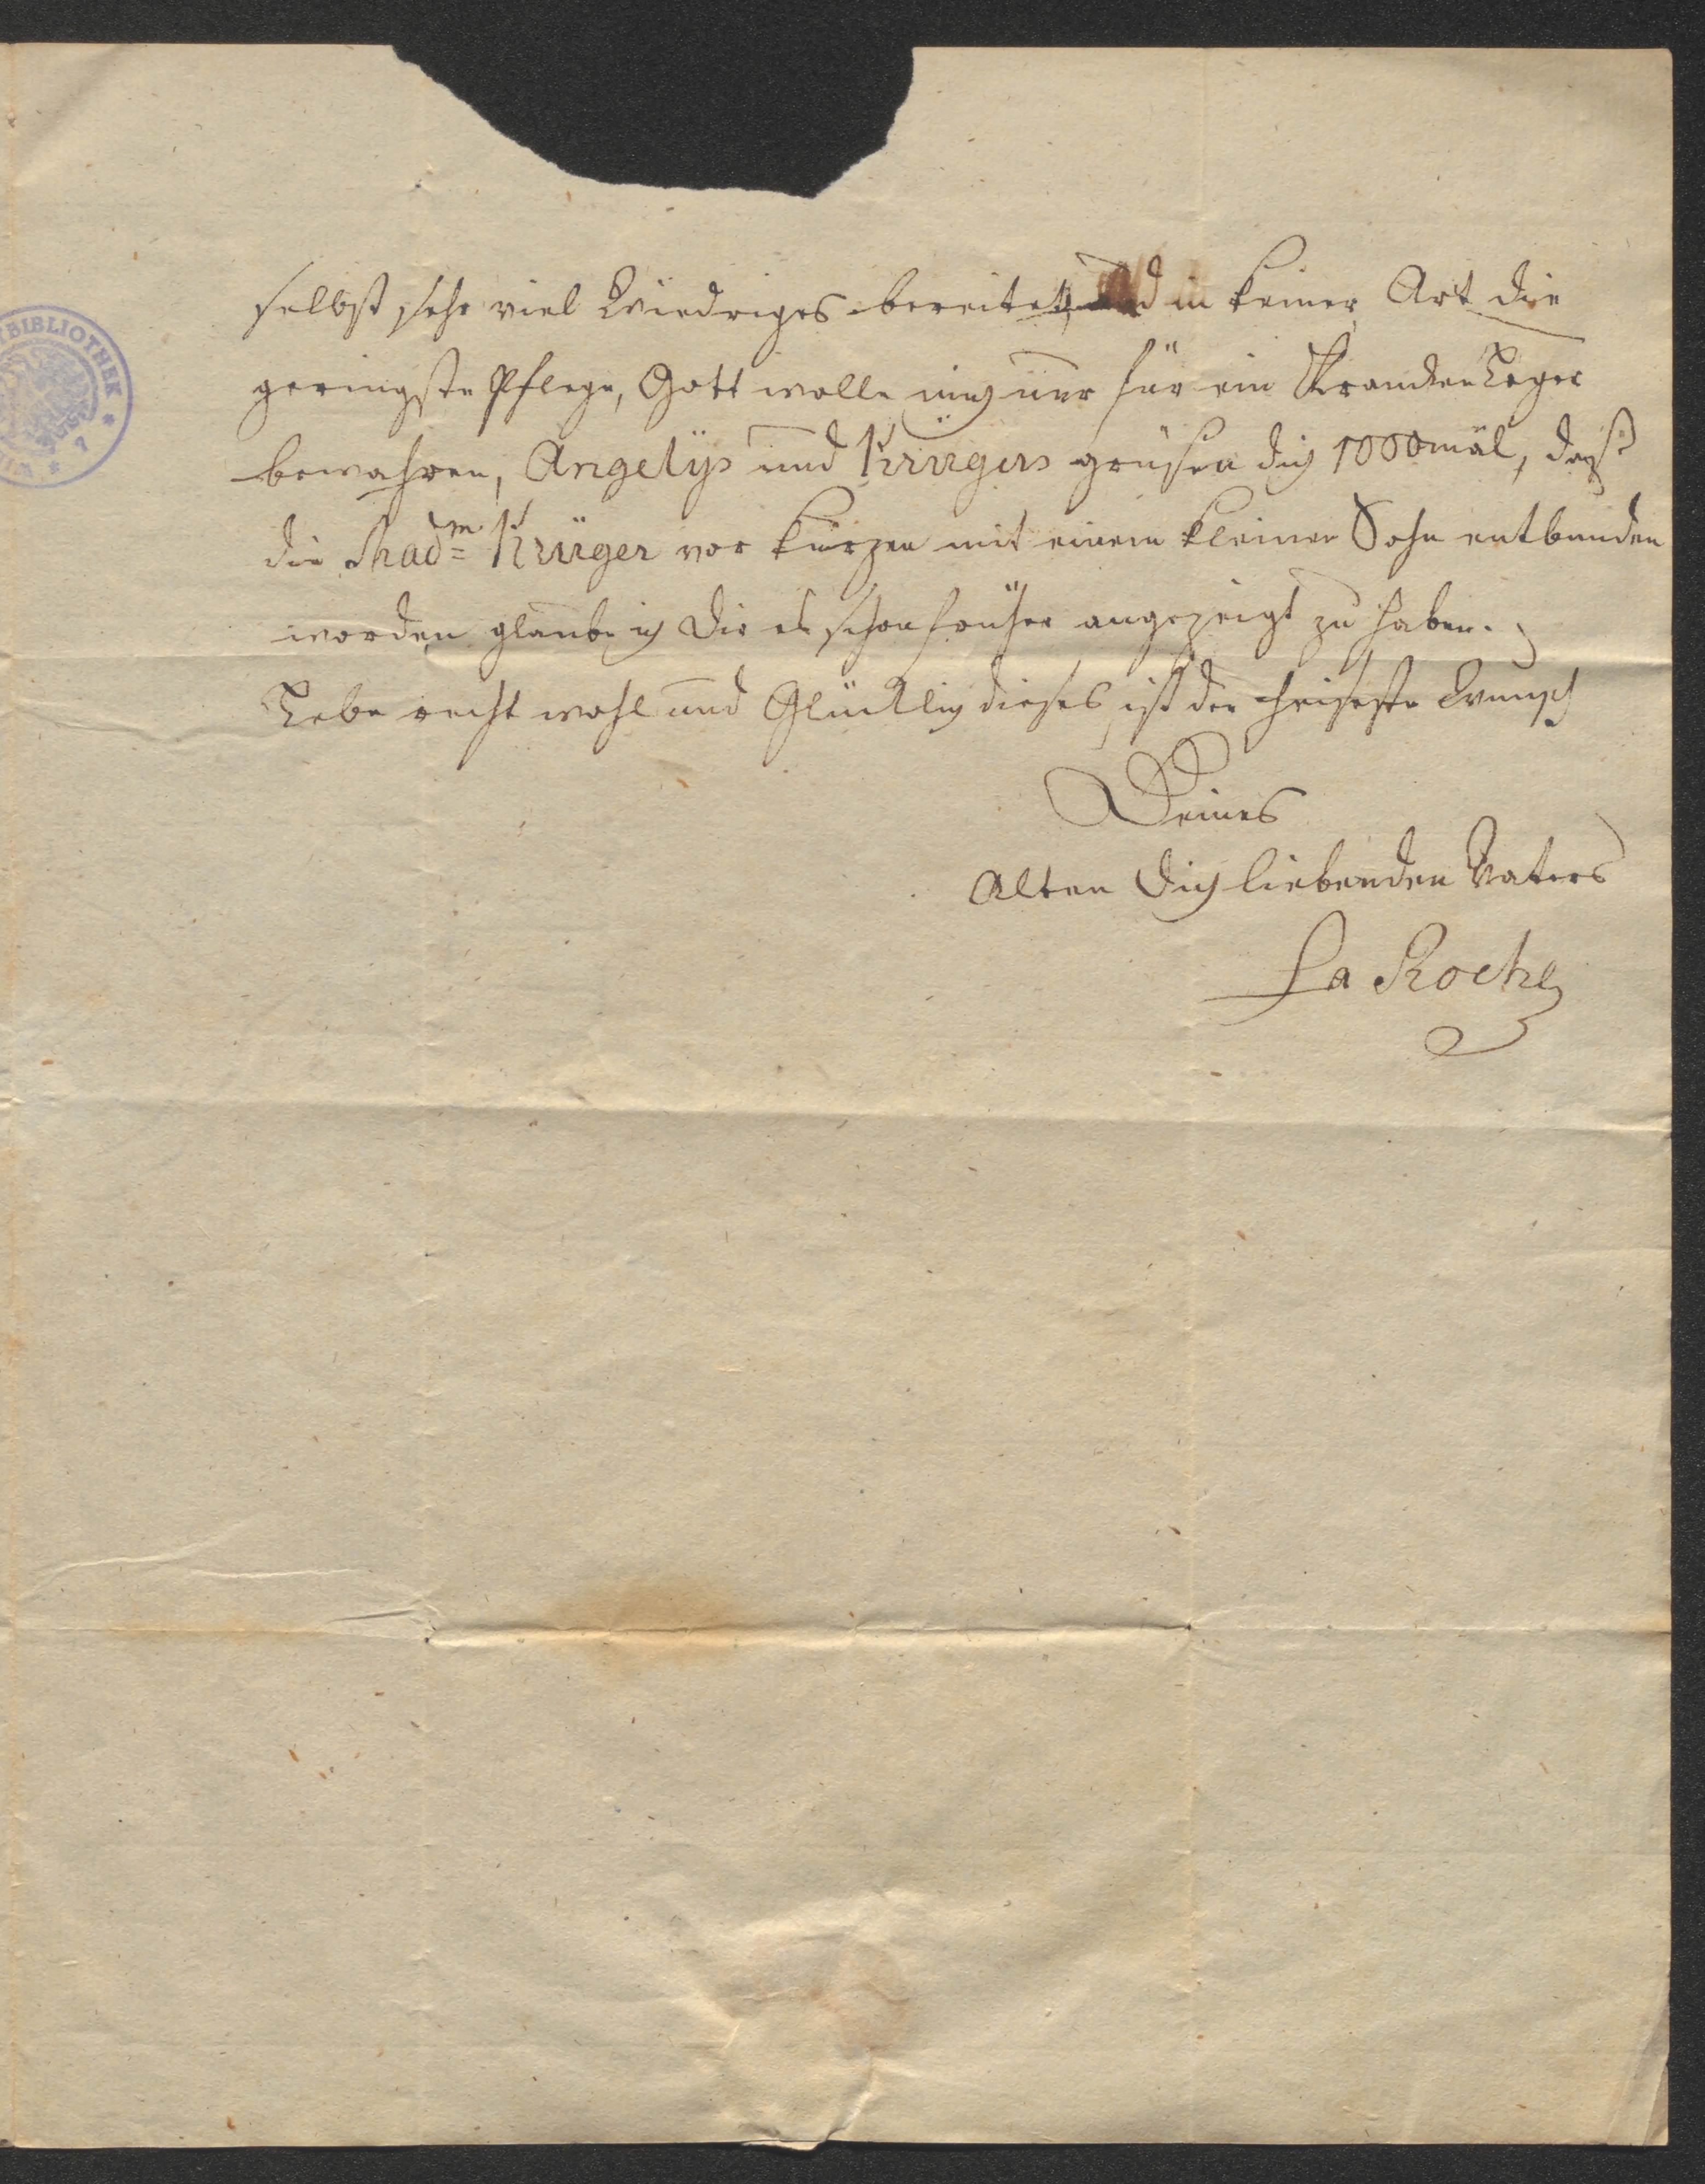 selbst sehr viel Wiedriges bereitet, und in keiner Art die
geringste Pflege, Gott wolle mich nur für ein KrankenLager
bewahren, Angelys und Krügers grüsen dich 1000mal, daß
die Madm= Krüger vor kurzen mit einem kleinen Sohn entbunden
worden glaube ich Dir es schon früher angezeigt zu haben.
Lebe recht wohl und Glücklich dieses ist der heiseste Wunsch
Deines
Alten Dich liebenden Vaters
La Roche
BIBLIOTHEK